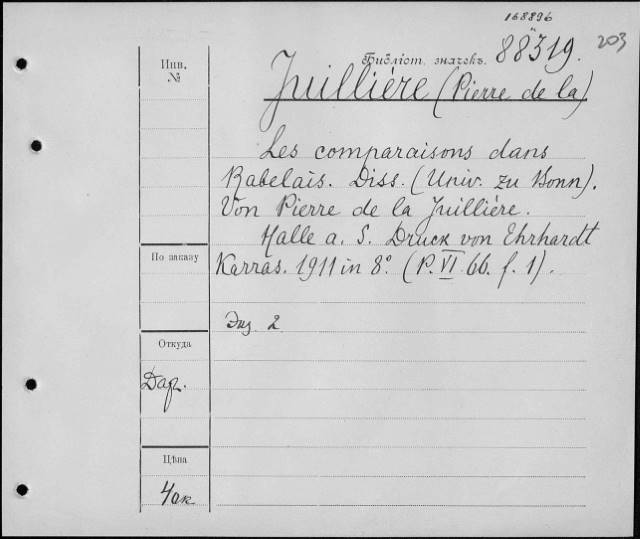 168896
203
Инв.
№
Библіот. значекъ. 88319.
Juillière (Pierre de la)
Les comparaisons dans
Rabelais. Diss. (Univ. zu Bonn).
Von Pierre de la Juillière.
Halle a. S. Druck von Ehrhardt
Karras. 1911 in 8º. (P. VI. 66. f. 1).
По заказу
Экз. 2
Откуда
Дар.
Цѣна